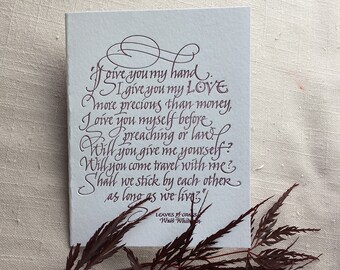 "I give you my hand.
I give you my LOVE
more precious than money,
I give you myself before
preaching or law.
Will you give me yourself?
Will you come travel with me?
Shall we stick by each other
as long as we live?"
LEAVES OF GRASS
Walt Whitman